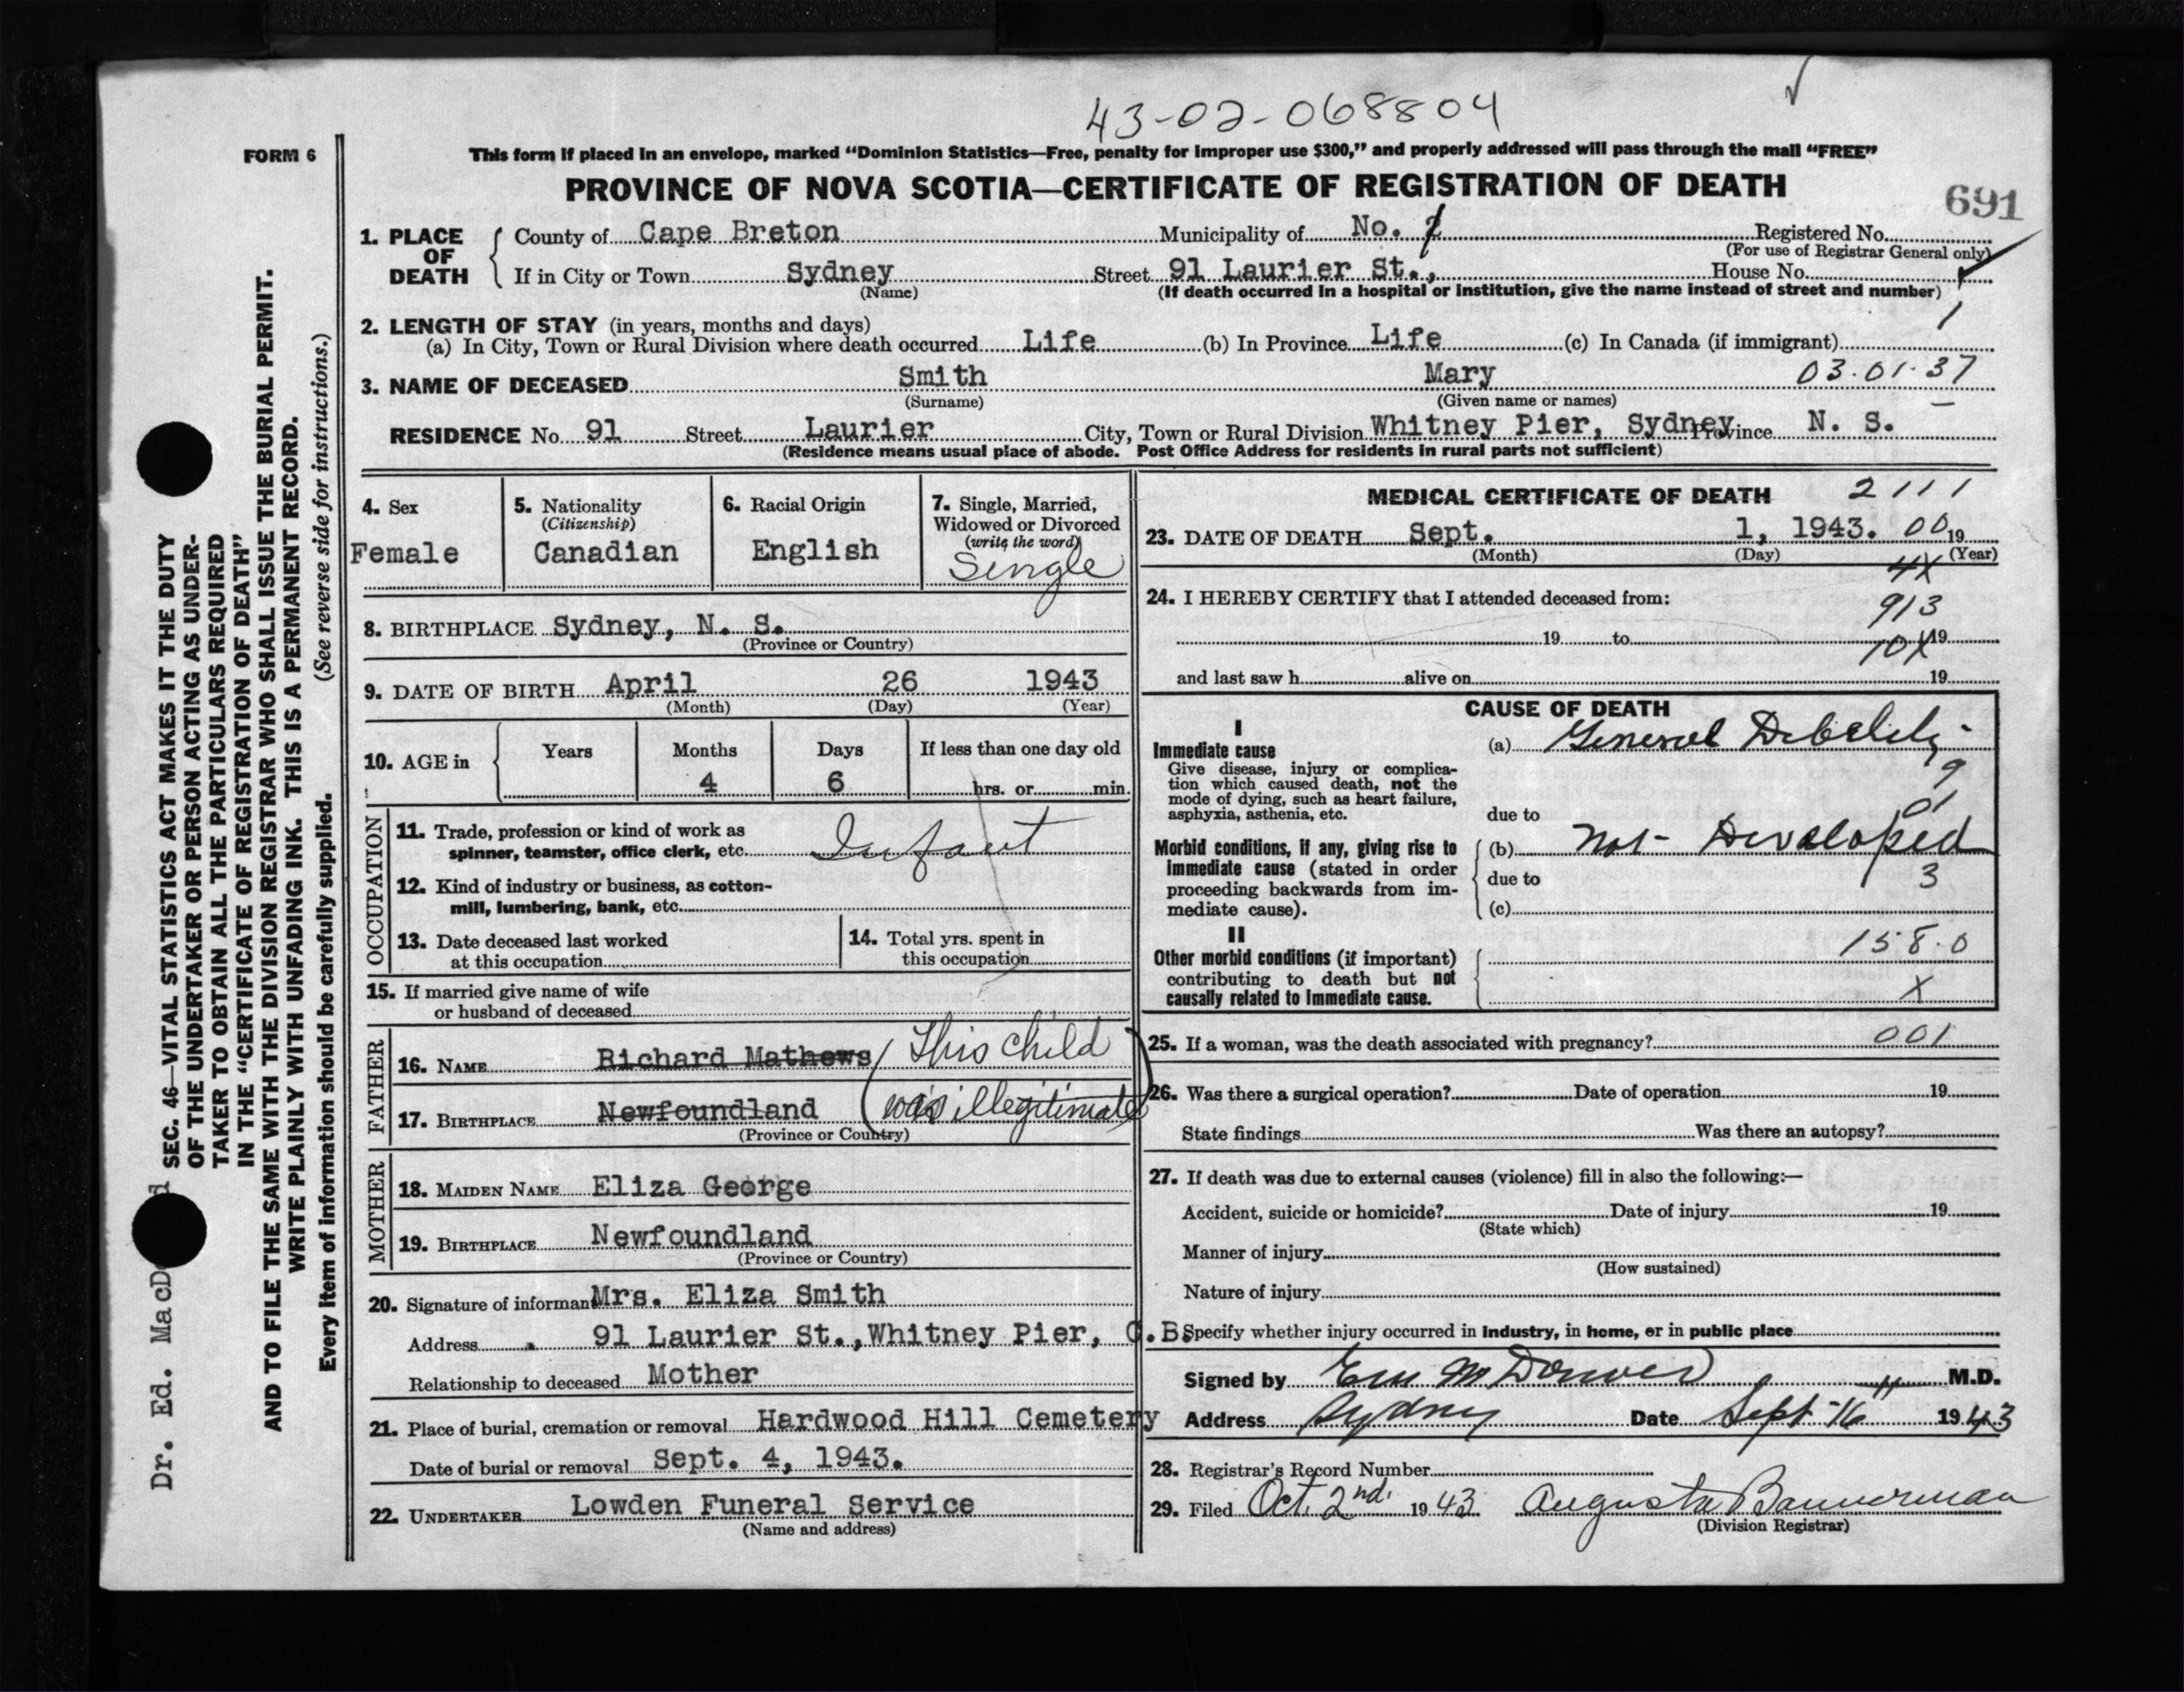 43-02-068804
FORM 6
This form if placed in an envelope, marked “Dominion Statistics—Free, penalty for improper use $300,” and properly addressed will pass through the mail “FREE”
PROVINCE OF NOVA SCOTIA—CERTIFICATE OF REGISTRATION OF DEATH
691
1. PLACE OF DEATH
County of Cape Breton Municipality of No. Registered No.
(For use of Registrar General only)
If in City or Town Sydney Street 91 Laurier St., House No.
(Name) (If death occurred in a hospital or institution, give the name instead of street and number)
1
2. LENGTH OF STAY (in years, months and days)
(a) In City, Town or Rural Division where death occurred Life (b) In Province Life (c) In Canada (if immigrant)
3. NAME OF DECEASED Smith Mary 03.01.37
(Surname) (Given name or names)
RESIDENCE No. 91 Street Laurier City, Town or Rural Division Whitney Pier, Sydney Province N. S.
(Residence means usual place of abode. Post Office Address for residents in rural parts not sufficient)
4. Sex
Female
5. Nationality
(Citizenship)
Canadian
6. Racial Origin
English
7. Single, Married,
Widowed or Divorced
(write the word)
Single
8. BIRTHPLACE Sydney, N. S.
(Province or Country)
9. DATE OF BIRTH April 26 1943
(Month) (Day) (Year)
10. AGE in
Years Months Days If less than one day old
4 6 hrs. or min.
OCCUPATION
11. Trade, profession or kind of work as
spinner, teamster, office clerk, etc. Infant
12. Kind of industry or business, as cotton-
mill, lumbering, bank, etc.
13. Date deceased last worked
at this occupation
14. Total yrs. spent in
this occupation
15. If married give name of wife
or husband of deceased
FATHER
16. NAME Richard Mathews (This child
17. BIRTHPLACE Newfoundland was illegitimate)
(Province or Country)
MOTHER
18. MAIDEN NAME Eliza George
19. BIRTHPLACE Newfoundland
(Province or Country)
20. Signature of informant Mrs. Eliza Smith
Address 91 Laurier St., Whitney Pier, C. B.
Relationship to deceased Mother
21. Place of burial, cremation or removal Hardwood Hill Cemetery
Date of burial or removal Sept. 4, 1943.
22. UNDERTAKER Lowden Funeral Service
(Name and address)
MEDICAL CERTIFICATE OF DEATH 2111
23. DATE OF DEATH Sept. 1, 1943. 00 19
(Month) (Day) (Year)
4X
24. I HEREBY CERTIFY that I attended deceased from:
913
19 to 19
10X
and last saw h alive on 19
CAUSE OF DEATH
I
Immediate cause
Give disease, injury or complica-
tion which caused death, not the
mode of dying, such as heart failure,
asphyxia, asthenia, etc.
(a) General Debility
9
01
due to
Morbid conditions, if any, giving rise to
immediate cause (stated in order
proceeding backwards from im-
mediate cause).
(b) Not Developed
due to 3
(c)
II
Other morbid conditions (if important)
contributing to death but not
causally related to immediate cause.
158.0
X
25. If a woman, was the death associated with pregnancy? 001
26. Was there a surgical operation? Date of operation 19
State findings Was there an autopsy?
27. If death was due to external causes (violence) fill in also the following:—
Accident, suicide or homicide? Date of injury 19
(State which)
Manner of injury
(How sustained)
Nature of injury
Specify whether injury occurred in industry, in home, or in public place
Signed by M.D.
Address Sydney Date Sept 16 1943
28. Registrar's Record Number
29. Filed Oct. 2nd. 1943 Augusta Bannerman
(Division Registrar)
SEC. 46—VITAL STATISTICS ACT MAKES IT THE DUTY
OF THE UNDERTAKER OR PERSON ACTING AS UNDER-
TAKER TO OBTAIN ALL THE PARTICULARS REQUIRED
IN THE “CERTIFICATE OF REGISTRATION OF DEATH”
AND TO FILE THE SAME WITH THE DIVISION REGISTRAR WHO SHALL ISSUE THE BURIAL PERMIT.
WRITE PLAINLY WITH UNFADING INK. THIS IS A PERMANENT RECORD.
Every item of information should be carefully supplied. (See reverse side for instructions.)
Dr. Ed.